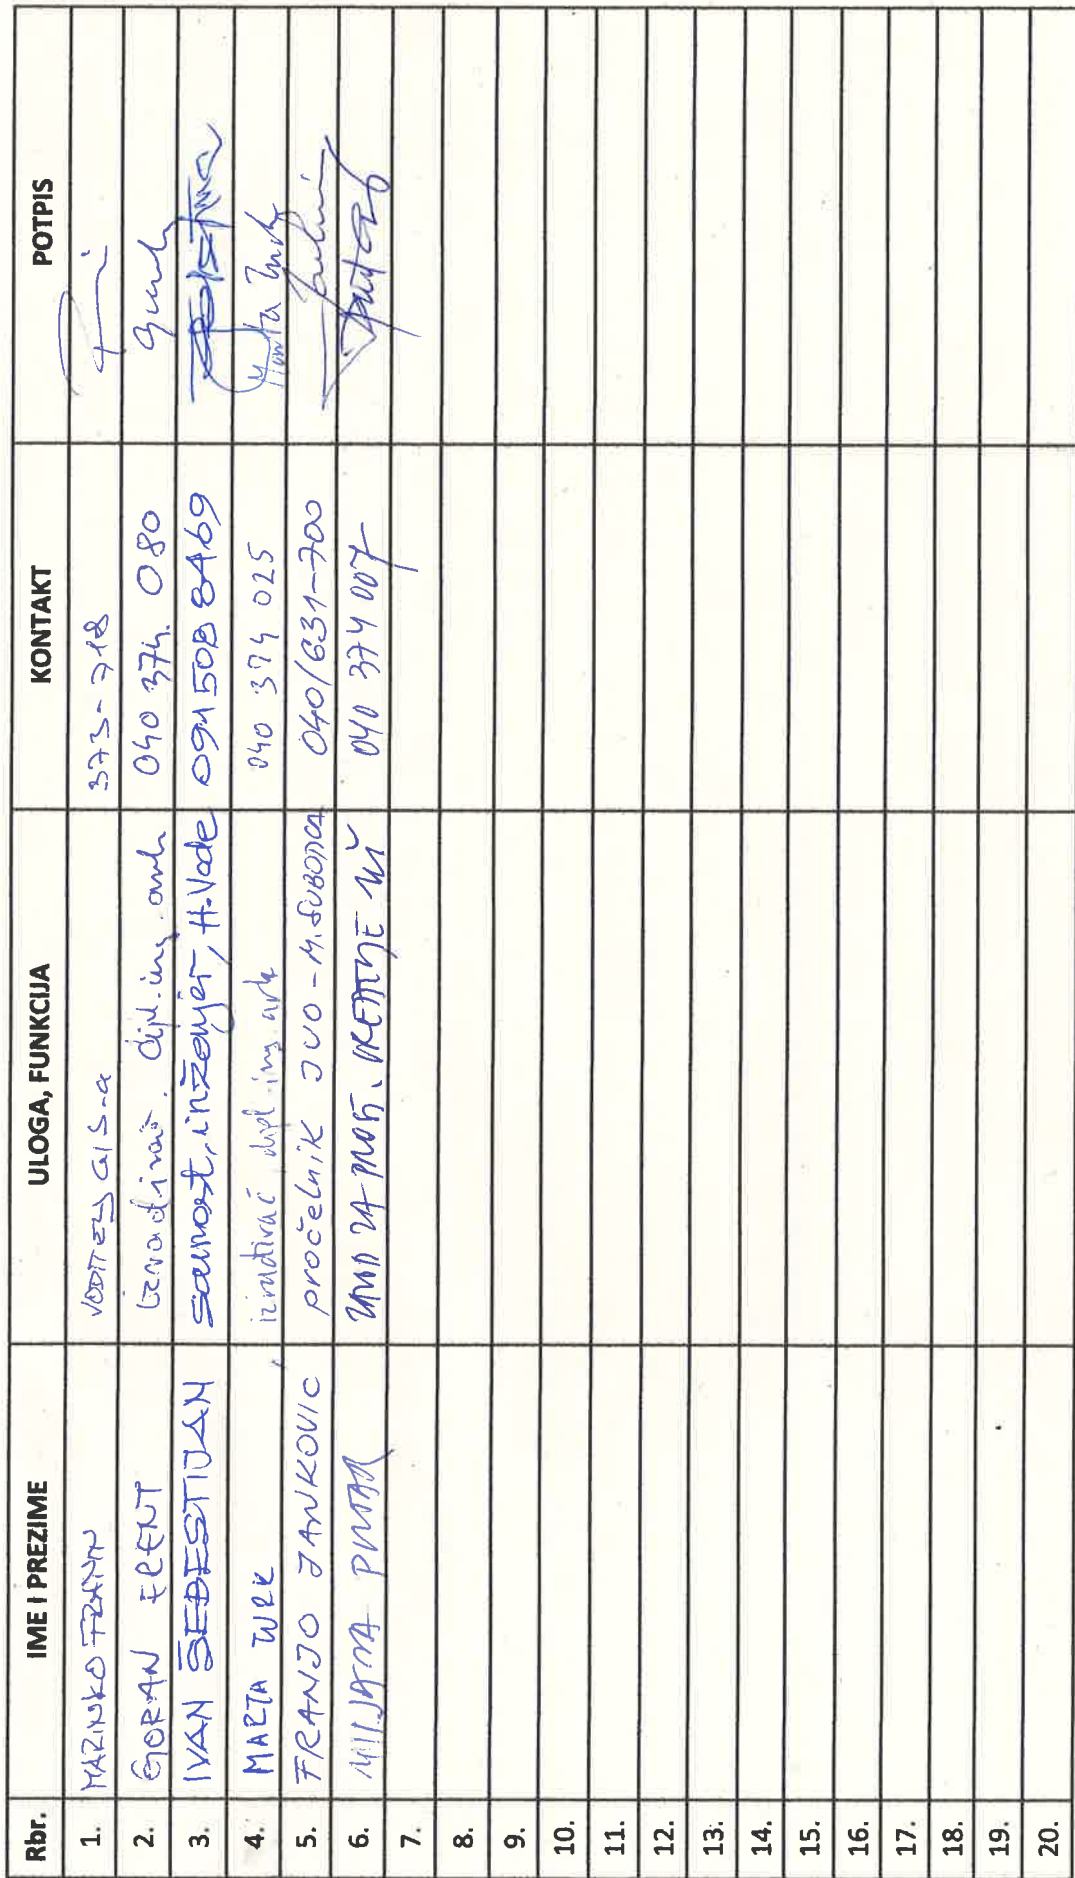 Rbr. IME I PREZIME ULOGA, FUNKCIJA KONTAKT POTPIS
1. MARINKO FRANIN VODITELJ GIS-a 373-718
2. GORAN FLENT izrađivač, dipl.ing. arh 040 374. 080
3. IVAN ŠEBESTIJAN inženjer, H.Vode 091 508 8469
4. MARTA TURK izrađivač dipl.ing.arh 040 374 025 Marta Turk
5. FRANJO JANKOVIC pročelnik JUO - M.SUBOTICA 040/631-700
6. MILJANA PINTAR ZA 040 374 007 Pintar
7.
8.
9.
10.
11.
12.
13.
14.
15.
16.
17.
18.
19.
20.